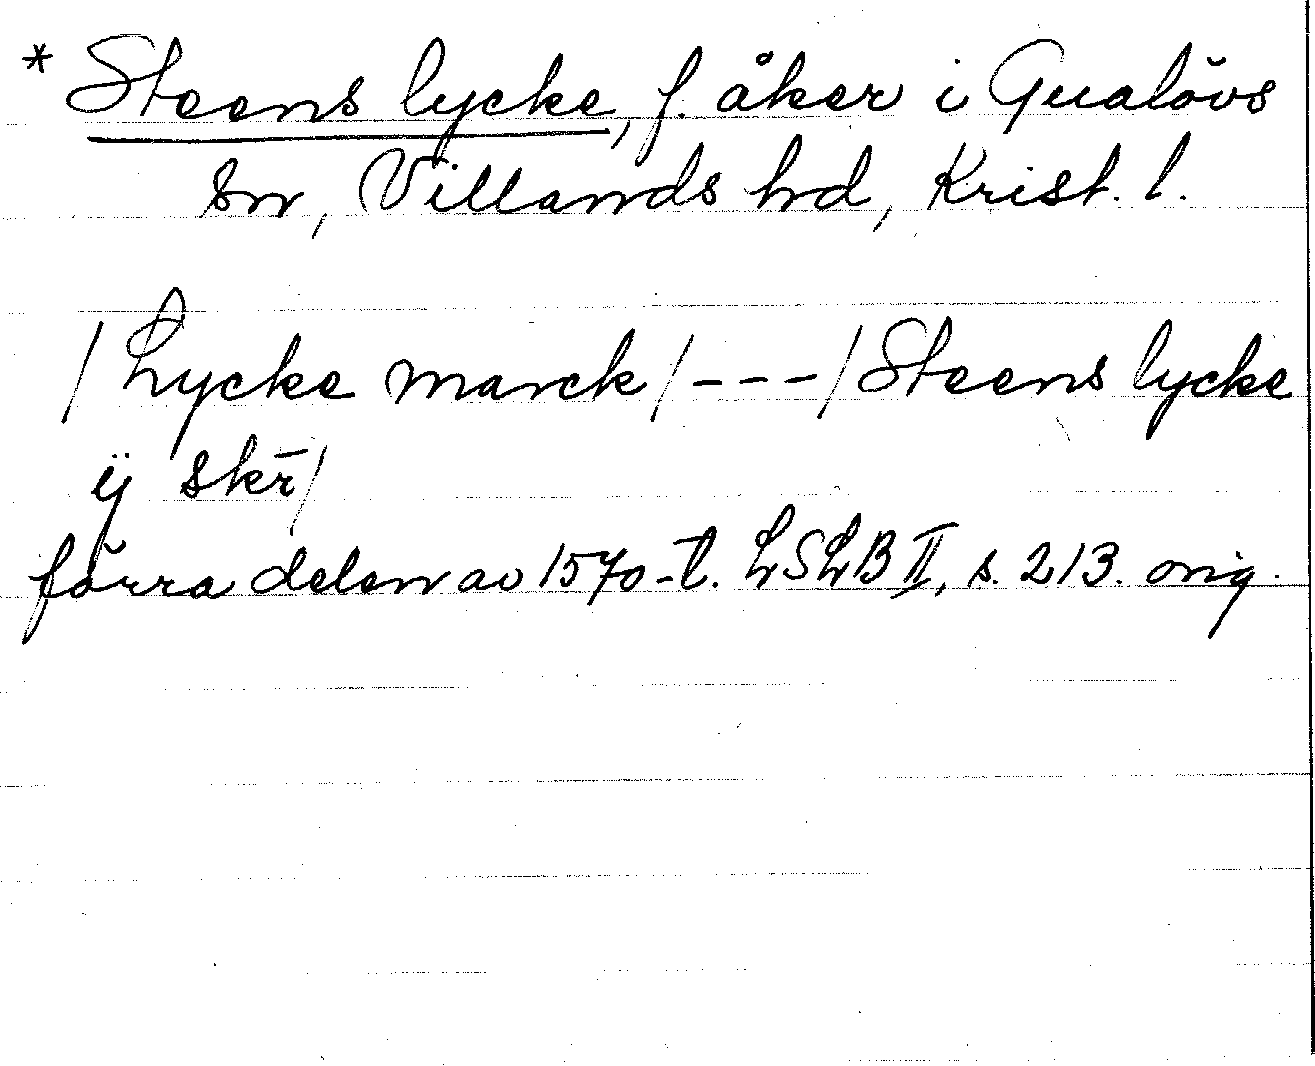 * Steens lycke, f. åker i Gualövs
sn, Villands hd, Krist. l.
/Lycke marck/---/Steens lycke
ÿ skr̄/
förra delen av 1570-t. LSLB II, s. 213. orig.